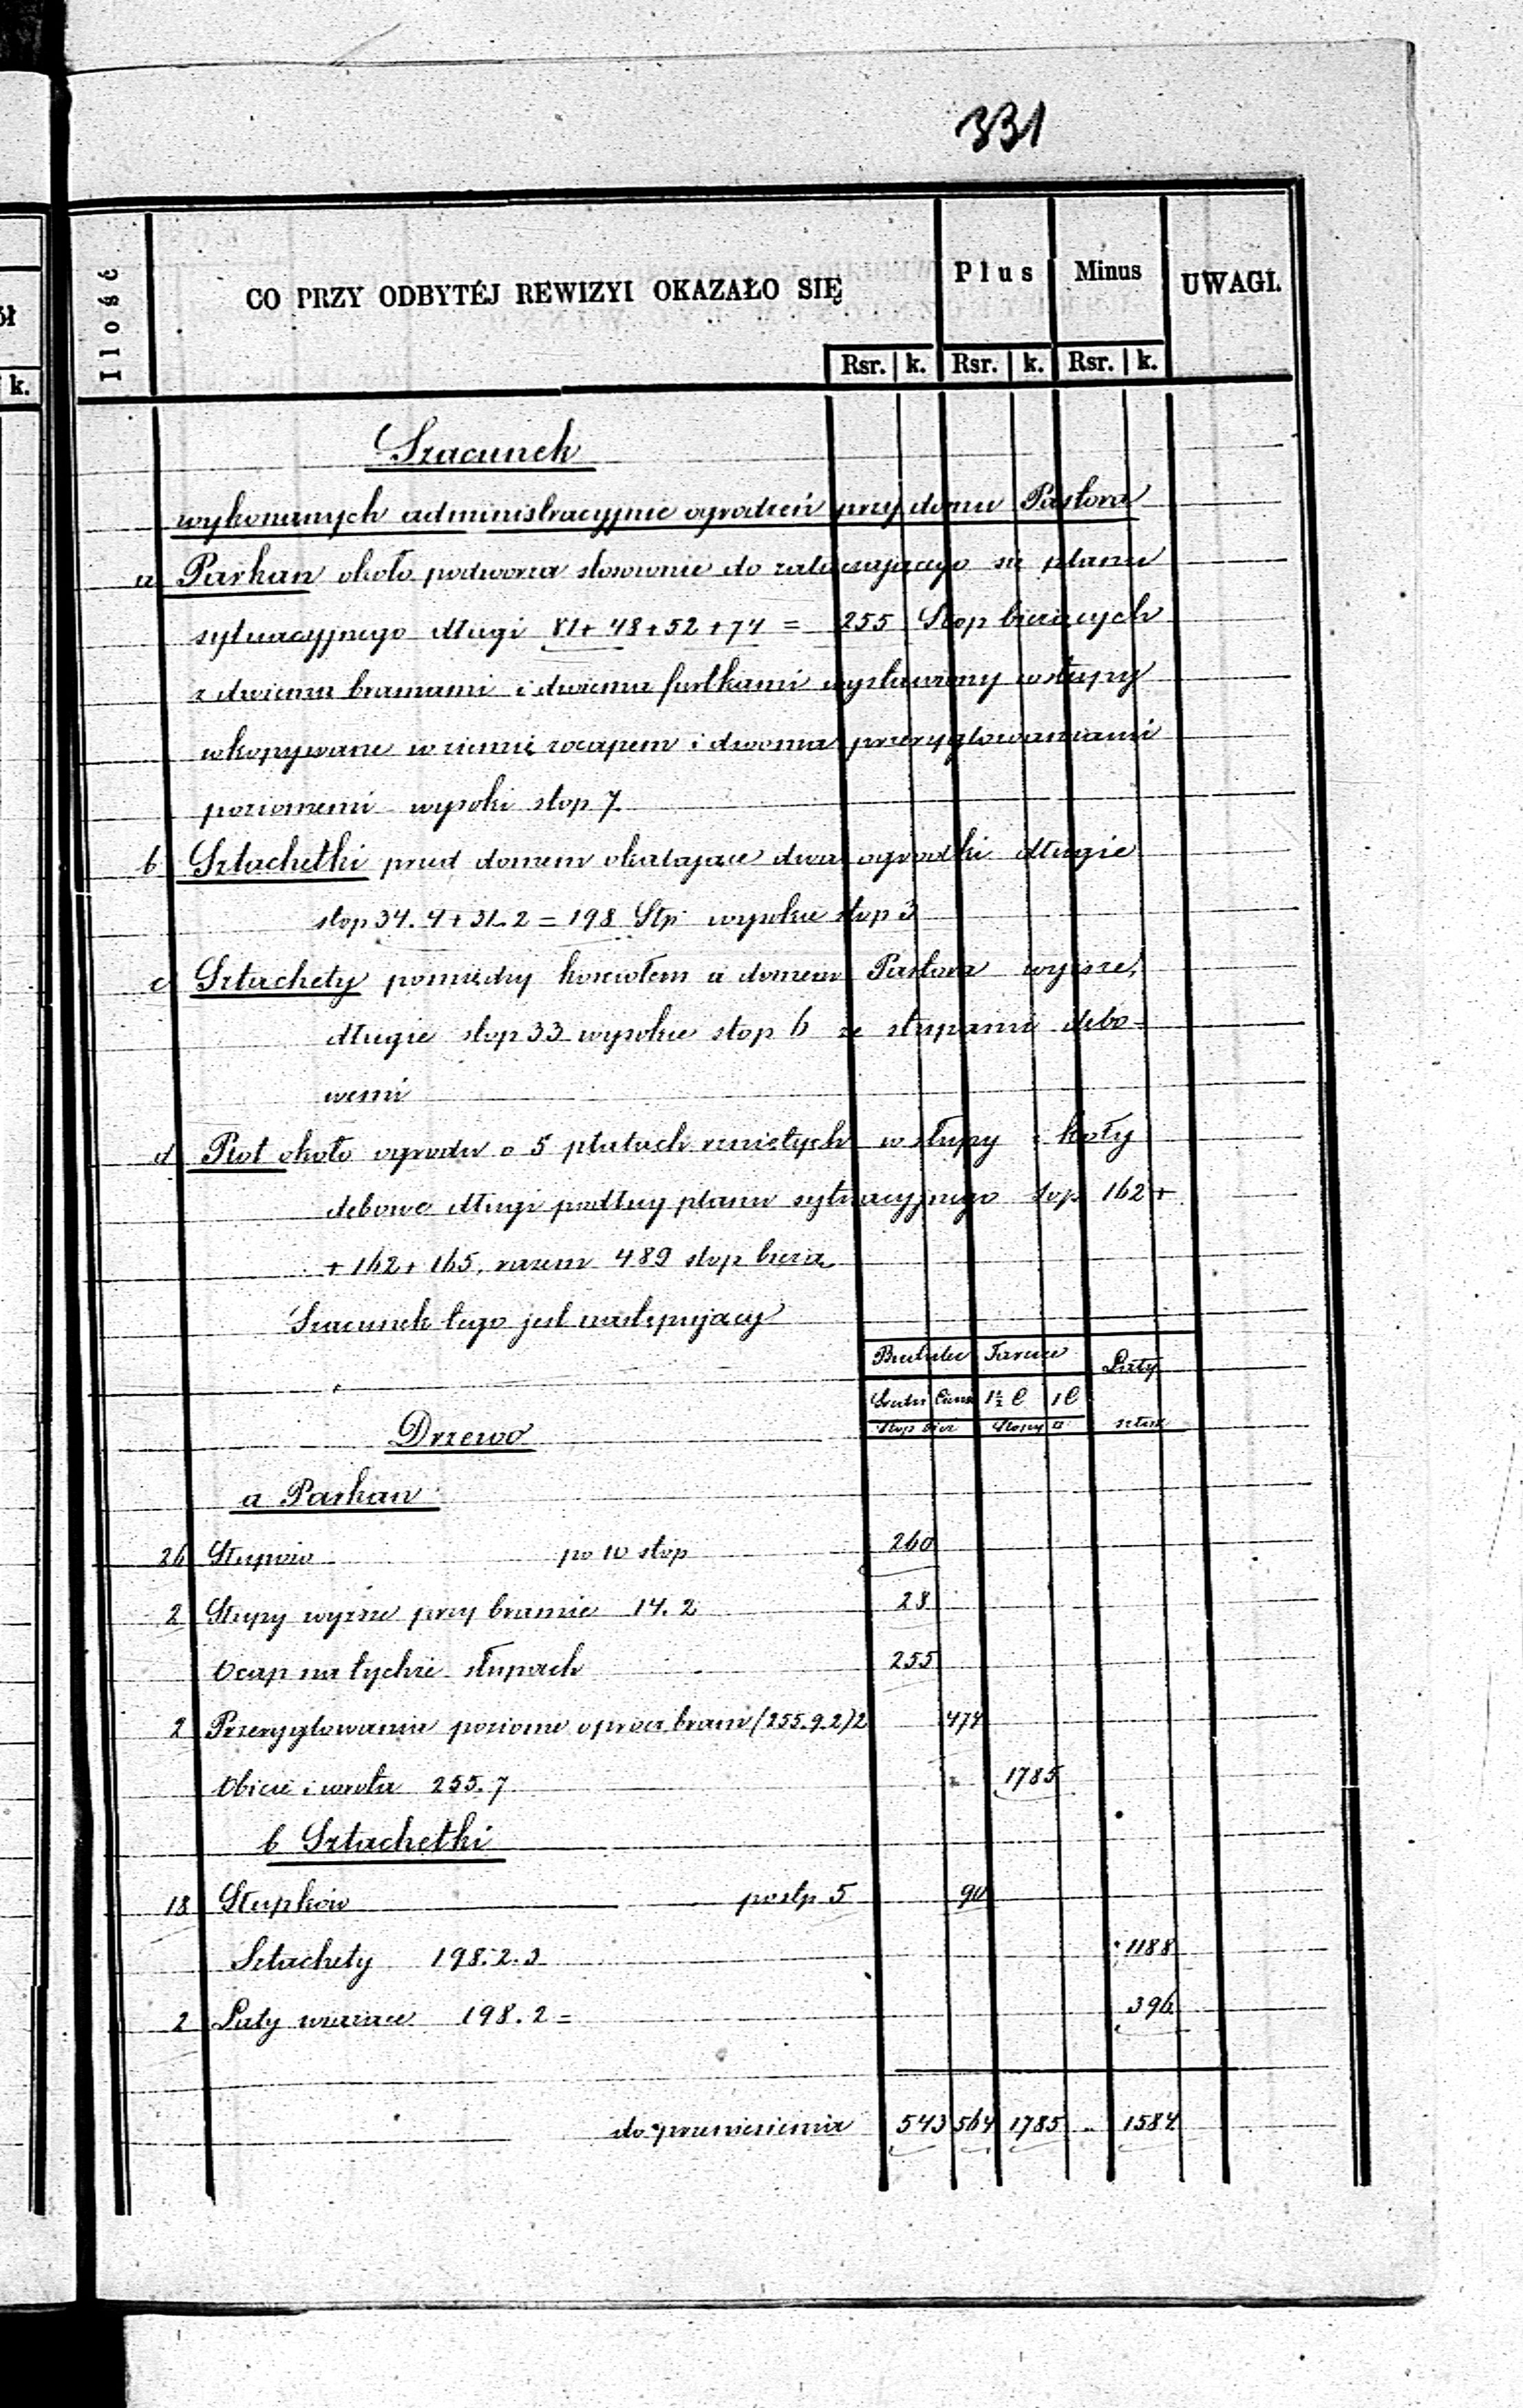 331
ół
k.
Ilość
CO PRZY ODBYTÉJ REWIZYI OKAZAŁO SIĘ
Plus
Minus
UWAGI.
Rsr. k. Rsr. k. Rsr. k.
Szacunek
wykonanych administracyjnie ogrodzeń przy domu Pastora
a Parkan około podworza stosownie do załączającego się planu
sytuacyjnego długi 81+48+52+74 = 255 Stop bieżących
z dwiema bramami i dwiema furtkami wystawiony w słupy
wkopywane w ziemię z ocapem i dwoma przeryglowaniami
poziomemi wysoki stop 7
b Sztachetki przed domem okalające dwa ogrodki długie
stop 34.4+31.2=198 Stp wysokie stop 3
c Sztachety pomiędzy kosciołem a domem Pastora wyższe,
długie stop 33 wysokie stop 6 ze słupami debo-
wemi
d Płot około ogrodu o 5 płatach rzniętych w słupy i koły
debowe długi podług planu sytuacyjnego stop 162+
+162+165, razem 489 stop bieżą
Szacunek tego jest następujący
Tarcice Łaty
1½ C 1 C
Stop bież Stopy □ sztuk
Drzewo
a Parkan
26 Słupów po 10 stop 260
2 Słupy wyższe przy bramie 14.2 28
Ocap na tychże słupach 255
2 Przeryglowania poziome oprócz bram (255.9.2)2 474
Obicie i wrota 255.7 1785
b Sztachetki
18 Słupków po stp 5 90
Sztachety 198.2.3 1188
2 Łaty 198.2= 396
do przeniesienia 543 564 1785 „ 1584